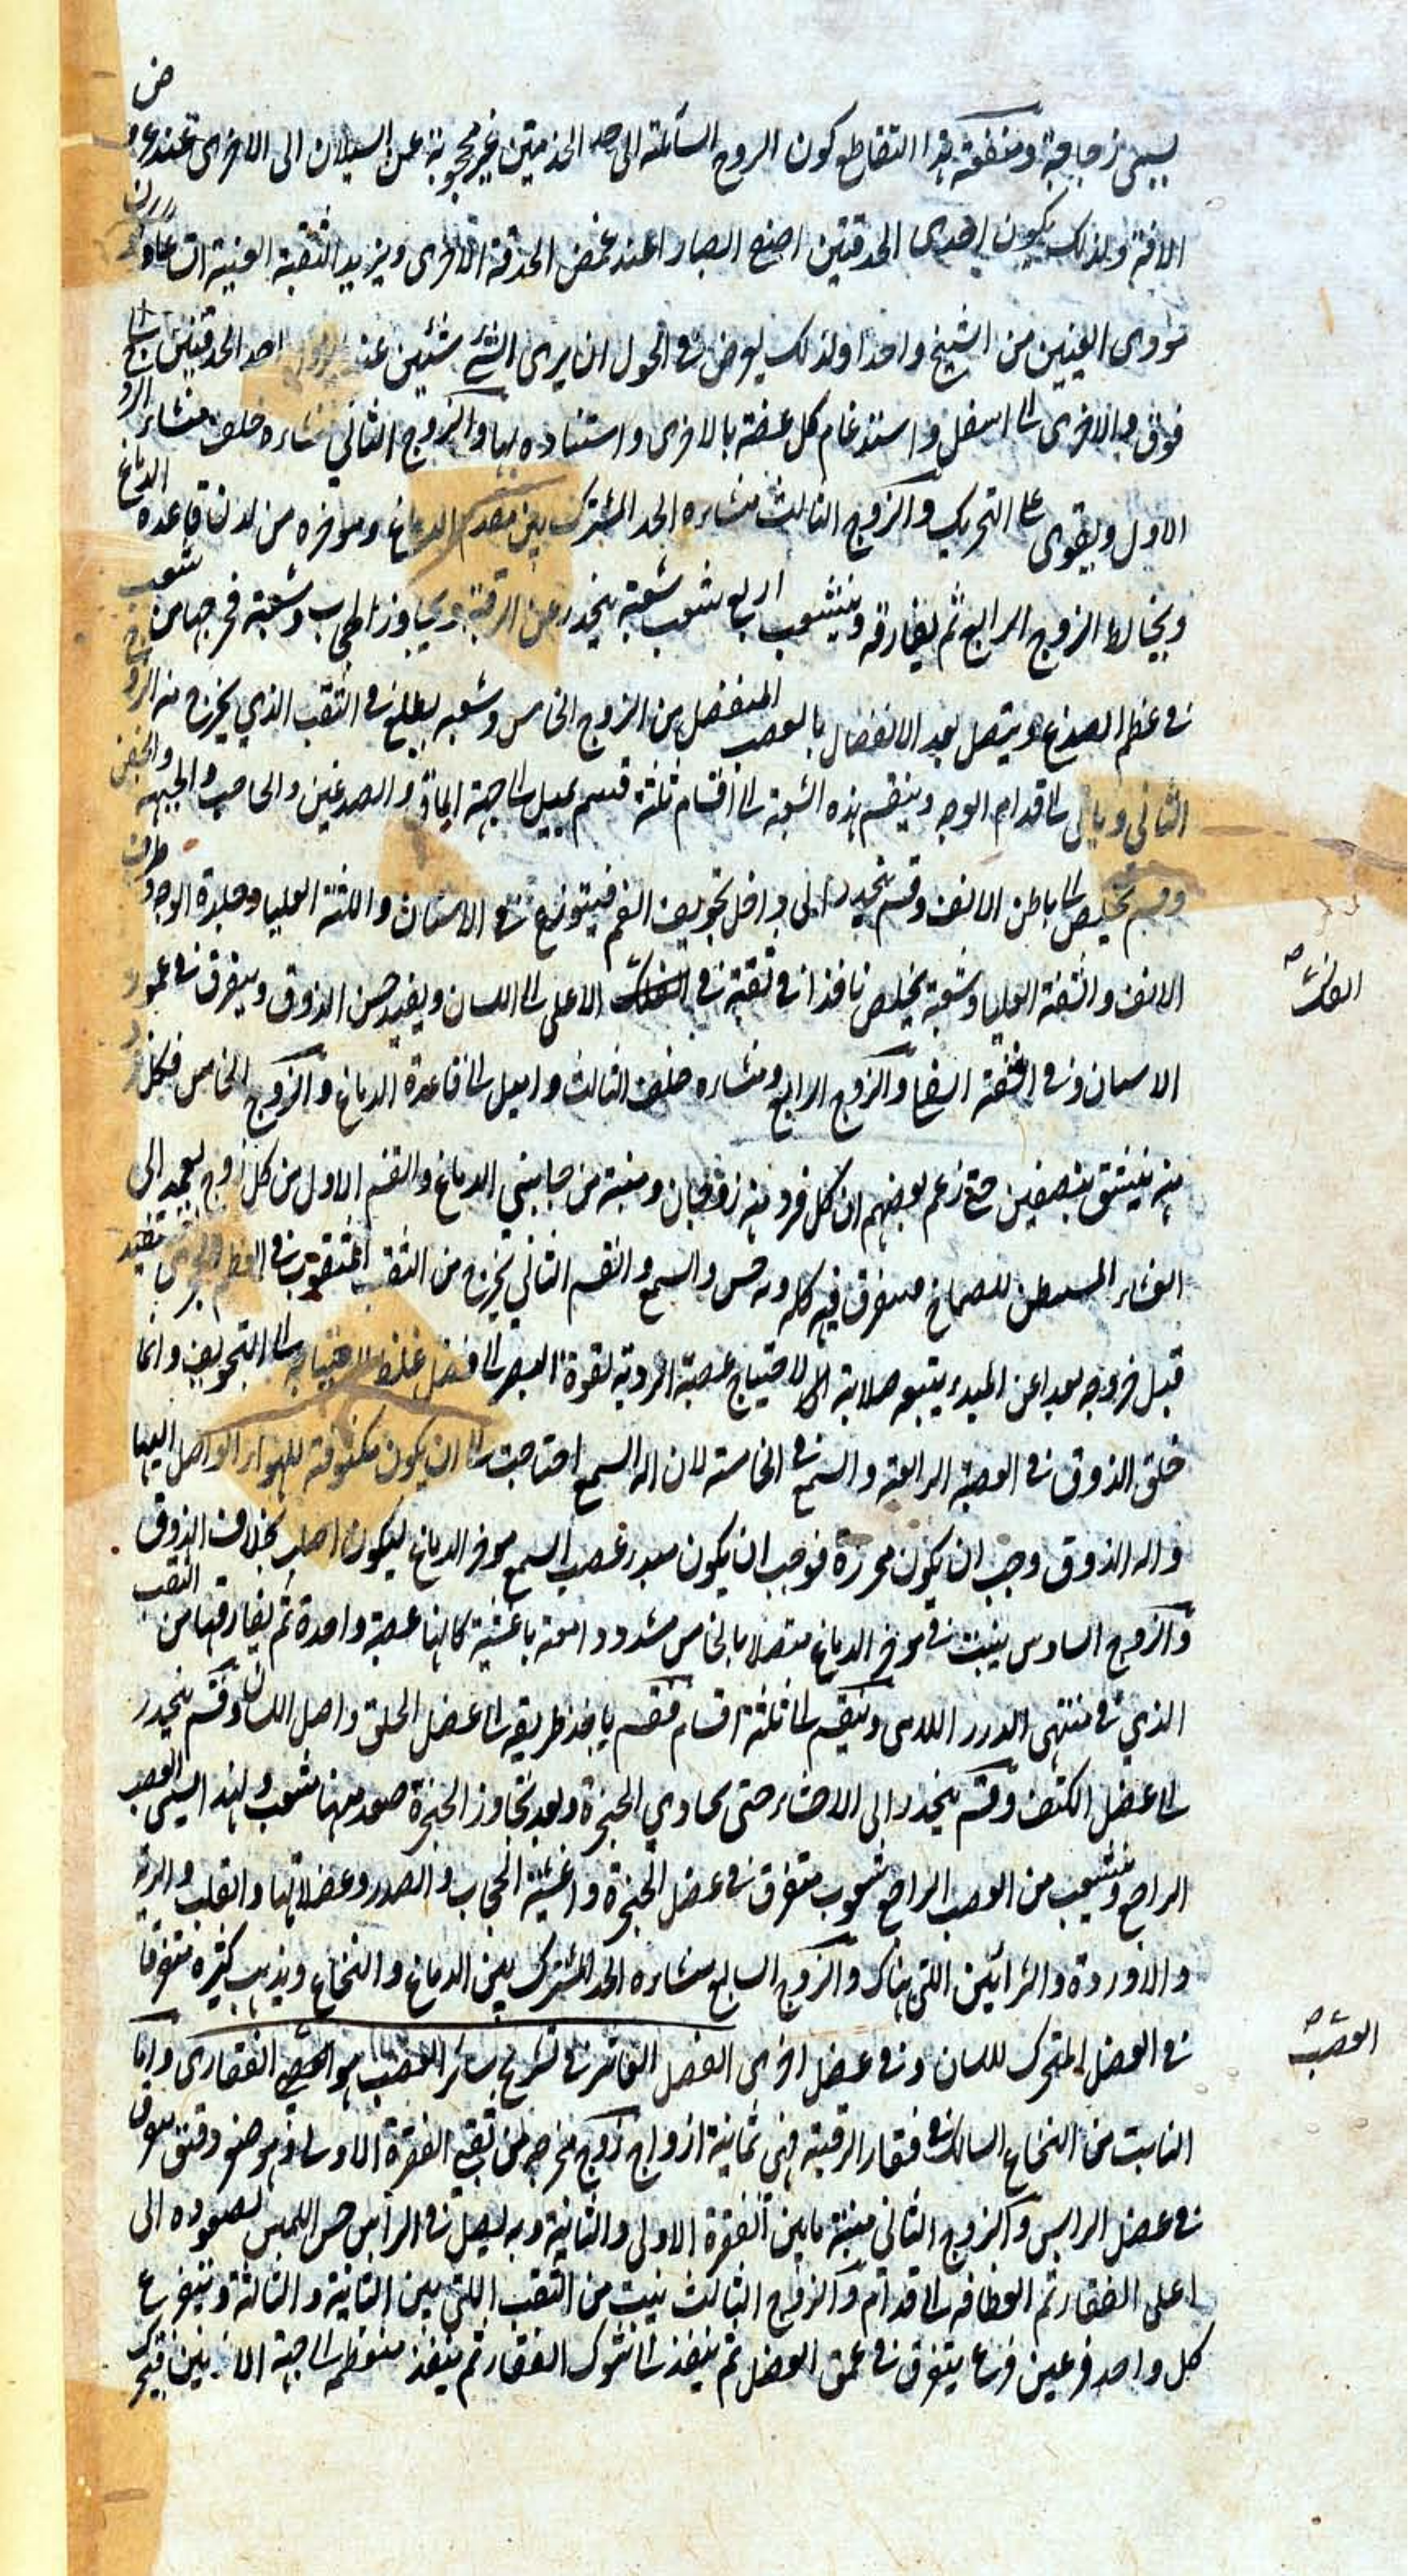 يسمى زجاجية ومنفعة هذا التقاطع كون الروح السائلة الى احد الحدقتين غير محجوبة عن السيلان الى الاخرى عند عروض
الافة ولذلك يكون احدى الحدقتين اصنع ابصارا عند غمض الحدقة الاخرى ويزيد الثقبة العنبية اتساعا وكون
مودى العينين من الشبح واحدا ولذلك يعرض فى الحول ان يرى الشئ شيئين عند زوال احد الحدقتين الى
فوق وبالاخرى الى اسفل واستدغام كل عضة بالاخرى واستناده بها والزوج الثاني منشاءه خلف منشاء الزوج
الاول ويقوى على التحريك والزوج الثالث منشاءه الحد المشترك بين مقدم الدماغ وموخره من لدن قاعدة الدماغ
ويخالط الزوج الرابع ثم يفارقه ويتشعب اربع شعب شعبة ينحدر عن الرقبة ويجاوز الحجاب وشعبة مخرجها من ثقب
فى عظم الصدغ ويتصل بعد الانفصال بالعصب المنفصل من الزوج الخامس وشعبه يطلع فى الثقب الذي يخرج منه الزوج
الثانى وياتى الى قدام الوجه وينقسم هذه الشعبة الى اقسام ثلثة قسم يميل الى جهة الماق والصدغين والحاجب والجبهة والجفن
وقسم تخليص الى باطن الانف وقسم ينحدر الى داخل تجويف الفم فيتوزع فى الاسنان واللثة العليا وجلدة الوجه وطرف
الانف والشفة العليا وشعبة يخلص نافذا فى ثقبة فى الفك الاعلى الى اللسان ويفيد حس الذوق ويتفرق فى عمور
الاسنان وفى الشفة السفلى والزوج الرابع ومنشاءه خلف الثالث واميل الى قاعدة الدماغ والزوج الخامس فكل فرد
منه ينشق بنصفين حتى زعم بعضهم ان كل فرد منه زوجان ومنبته من جانبي الدماغ والقسم الاول من كل زوج يعمد الى
الغشاء المستبطن للصماخ متفرق فيه كله وبه حس السمع والقسم الثاني يخرج من الثقب المثقوب فى العظم الحجرى
قبل خروجه بعد عن المبدء يتبعه صلابة لاحتياج عصبة الروية لقوة البصر الى فضل غلظ التجويف وانما
خلق الذوق فى العصبة الرابعة والسمع فى الخامسة لان الة السمع احتاجت الى ان يكون مكشوفة للهواء الواصل اليها
والة الذوق وجب ان يكون محرزة فوجب ان يكون مبدء عصب السمع موخر الدماغ ليكون اصلب بخلاف الذوق
والزوج السادس ينبت فى موخر الدماغ متصلا بالخامس مشدودا معه باغشية كانها عصبة واحدة ثم يفارقها من الثقب
الذي فى منتهى الدرز اللامى وينقسم الى ثلثة اقسام فقسم ياخذ طريقه الى عضل الحلق واصل اللسان وقسم ينحدر
الى عضل الكتف وقسم ينحدر الى الاحشاء حتى يحاوي الحنجرة وبعد تجاوز الحنجرة صعد منها شعب ولهذا يسمى العصب
الراجع ويتشعب من العصب الراجع شعوب متفرق فى عضل الحنجرة واغشية الحجاب والصدر وعضلاتها والقلب والرية
والاوردة والشرائين اللتى هناك والزوج السابع منشاءه الحد المشترك بين الدماغ والنخاع ويذهب كثره متفرقا
فى العضل المتحرك للسان وفى عضل اخرى الفصل العاشر فى تشريح سائر العصب هو العصب الفقارى واما
النابت من النخاع السالك فى فقار الرقبة فهى ثمانية ازواج زوج مخرجه من ثقبى الفقرة الاولى وهو صغير دقيق يتفرق
فى عضل الراس والزوج الثانى منبته مابين الفقرة الاولى والثانية وبه ليصل فى الراس حس اللمس لصعوده الى
اعلى الفقار ثم انعطافه الى قدام والزوج الثالث ينبت من الثقب اللتى بين الثانية والثالثة ويتفرع
كل واحد فرعين فرع يتفرق فى عمق العضل ثم ينفذ الى شوك الفقار ثم ينفذ منعطفه الى جهة الاذنين فيحرك
الفك صح
العصب صح